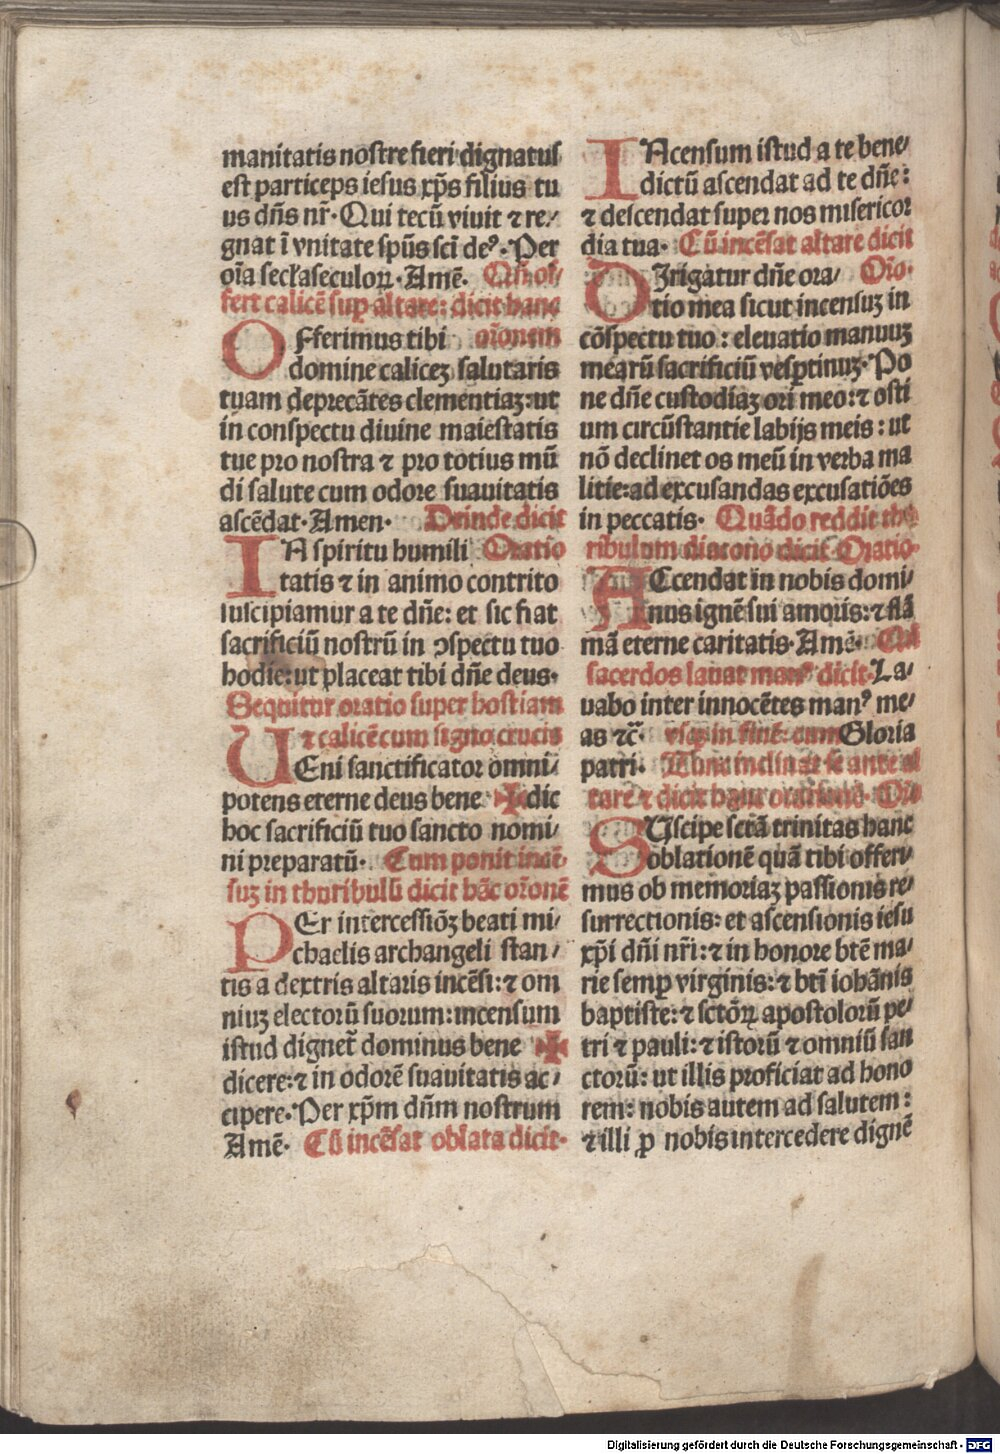 manitatis nostre fieri dignatus
est particeps iesus xp̄s filius tu
us dn̄s nr̄. Qui tecū viuit ⁊ re⸗
gnat ī vnitate spūs sc̄i deꝰ. Per
oīa secl̄a seculoꝝ. Amē. Qn̄ of⸗
fert calicē suꝑ altare: dicit hanc
OFferimus tibi orōnem
domine calicēꝫ salutaris
tuam deprecātes clementiaꝫ: ut
in conspectu diuine maiestatis
tue pro nostra ⁊ pro totius mū
di salute cum odore suauitatis
ascēdat. Amen. Deinde dicit
IN spiritu humili Oratio
tatis ⁊ in animo contrito
suscipiamur a te dn̄e: et sic fiat
sacrificiū nostrū in ↄspectu tuo
hodie: ut placeat tibi dn̄e deus.
Sequitur oratio super hostiam
⁊ calicē cum signo crucis
UEni sanctificator omni⸗
potens eterne deus bene ✠ dic
hoc sacrificiū tuo sancto nomi⸗
ni preparatū. Cum ponit incē⸗
suꝫ in thuribulū dicit hāc orōnē
PEr intercessiōꝫ beati mi⸗
chaelis archangeli stan⸗
tis a dextris altaris incēsi: ⁊ om
niuꝫ electorū suorum: incensum
istud dignet̄ dominus bene ✠
dicere: ⁊ in odorē suauitatis ac⸗
cipere. Per xp̄m dn̄m nostrum
Amē. Cū incēsat oblata dicit.
INcensum istud a te bene⸗
dictū ascendat ad te dn̄e:
⁊ descendat super nos misericor
dia tua. Cū incēsat altare dicit
DIrigatur dn̄e ora⸗ Orō.
tio mea sicut incensuꝫ in
cōspectu tuo: eleuatio manuuꝫ
mearū sacrificiū vesꝑtinuꝫ. Po
ne dn̄e custodiaꝫ ori meo: ⁊ osti
um circūstantie labijs meis: ut
nō declinet os meū in verba ma
litie: ad excusandas excusatiōes
in peccatis. Quādo reddit thu
ribulum diacono dicit Oratio.
ACcendat in nobis domi⸗
nus ignē sui amoris: ⁊ flā
mā eterne caritatis. Amē. Cū
sacerdos lauat manꝰ dicit. La⸗
uabo inter innocētes manꝰ me⸗
as ⁊c̄. vsqꝫ in finē: cum Gloria
patri. Tunc inclinat se ante al
tare ⁊ dicit hanc orationē. Orō
SUscipe sctā trinitas hanc
oblationē quā tibi offeri⸗
mus ob memoriaꝫ passionis re⸗
surrectionis: et ascensionis iesu
xp̄i dn̄i nr̄i: ⁊ in honore btē ma⸗
rie semꝑ virginis: ⁊ btī iohānis
baptiste: ⁊ sctōꝝ apostolorū pe⸗
tri ⁊ pauli: ⁊ istorū ⁊ omniū san
ctorū: ut illis proficiat ad hono
rem: nobis autem ad salutem:
⁊ illi ꝓ nobis intercedere dignē
Digitalisierung gefördert durch die Deutsche Forschungsgemeinschaft - DFG